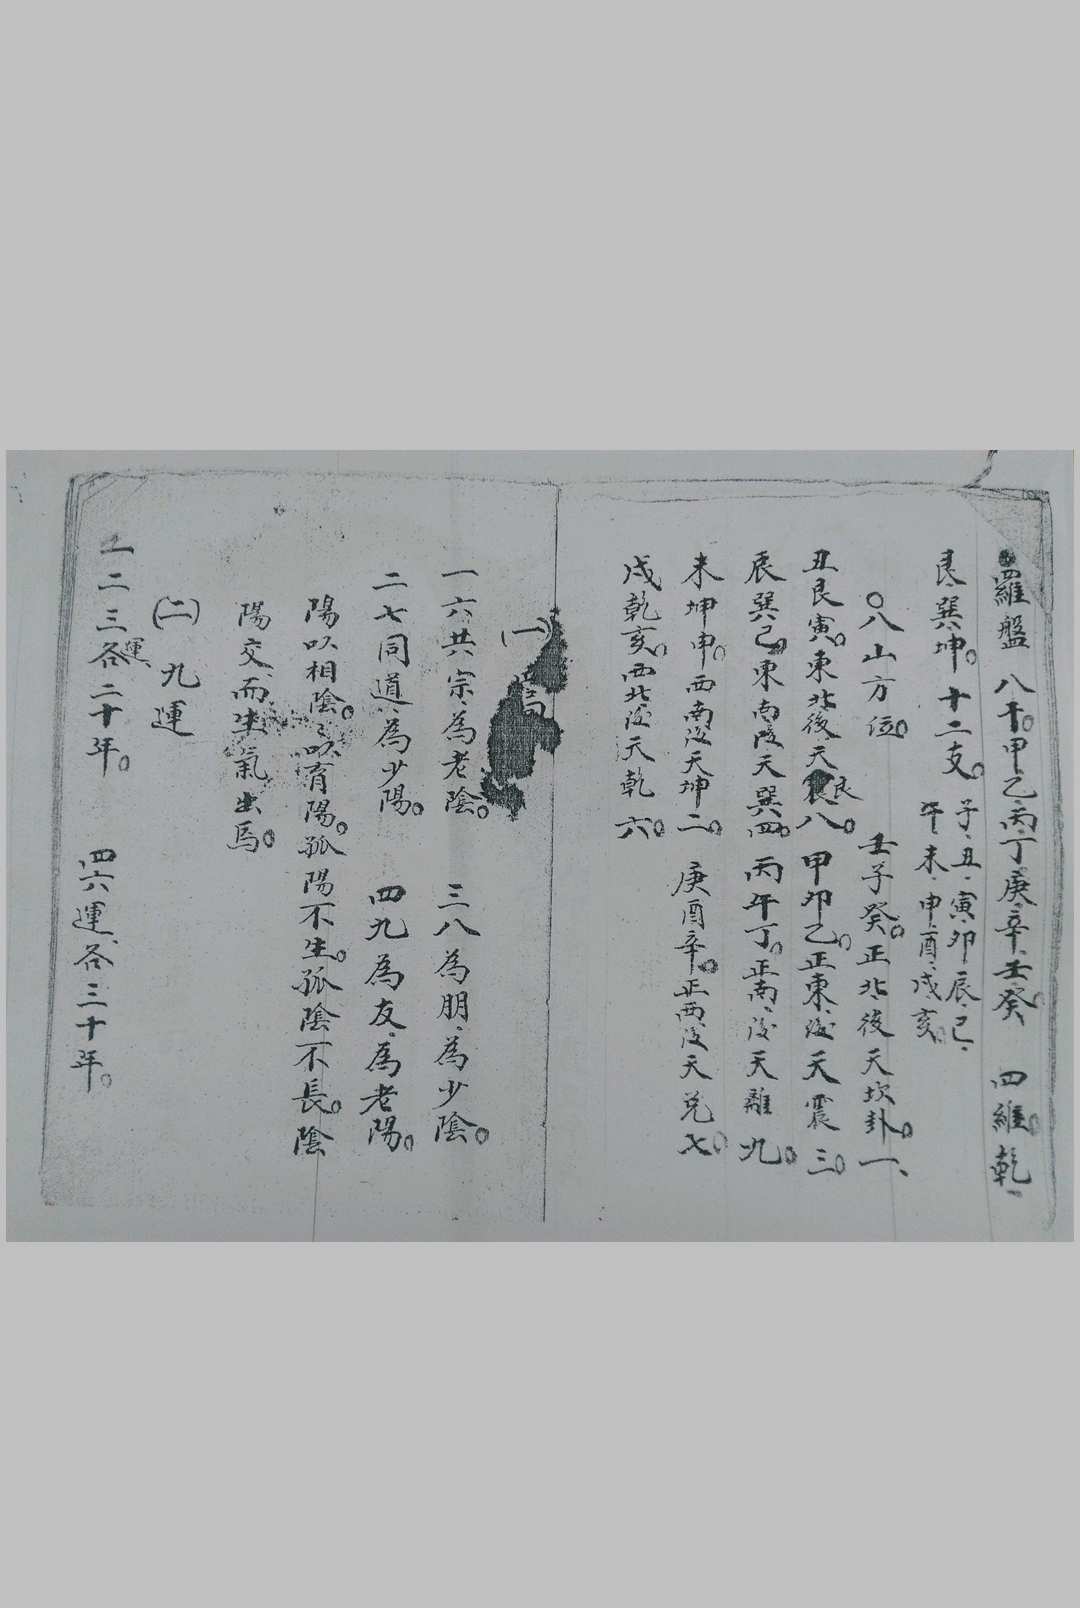 羅盤 八干。甲乙、丙丁、庚、辛、壬癸。 四維。乾、
艮、巽坤。 十二支。子、丑、寅、卯、辰、巳、
午、未、申、酉、戌、亥。
○八山方位。 壬子癸。正北、後天坎卦。一、
丑艮寅。東北後天艮八。 甲卯乙。正東、後天震三。
辰巽巳。東南後天巽四。 丙午丁。正南、後天離九。
未坤申。西南後天坤二。 庚酉辛。正西後天兌七。
戌乾亥。西北後天乾六。
(一)
一六共宗、為老陰。 三八為朋、為少陰。
二七同道、為少陽。 四九為友、為老陽。
陽以相陰。陰以育陽。孤陽不生。孤陰不長。陰
陽交、而生氣出焉。
(二) 九運
一二三運各二十年。 四六運、各三十年。